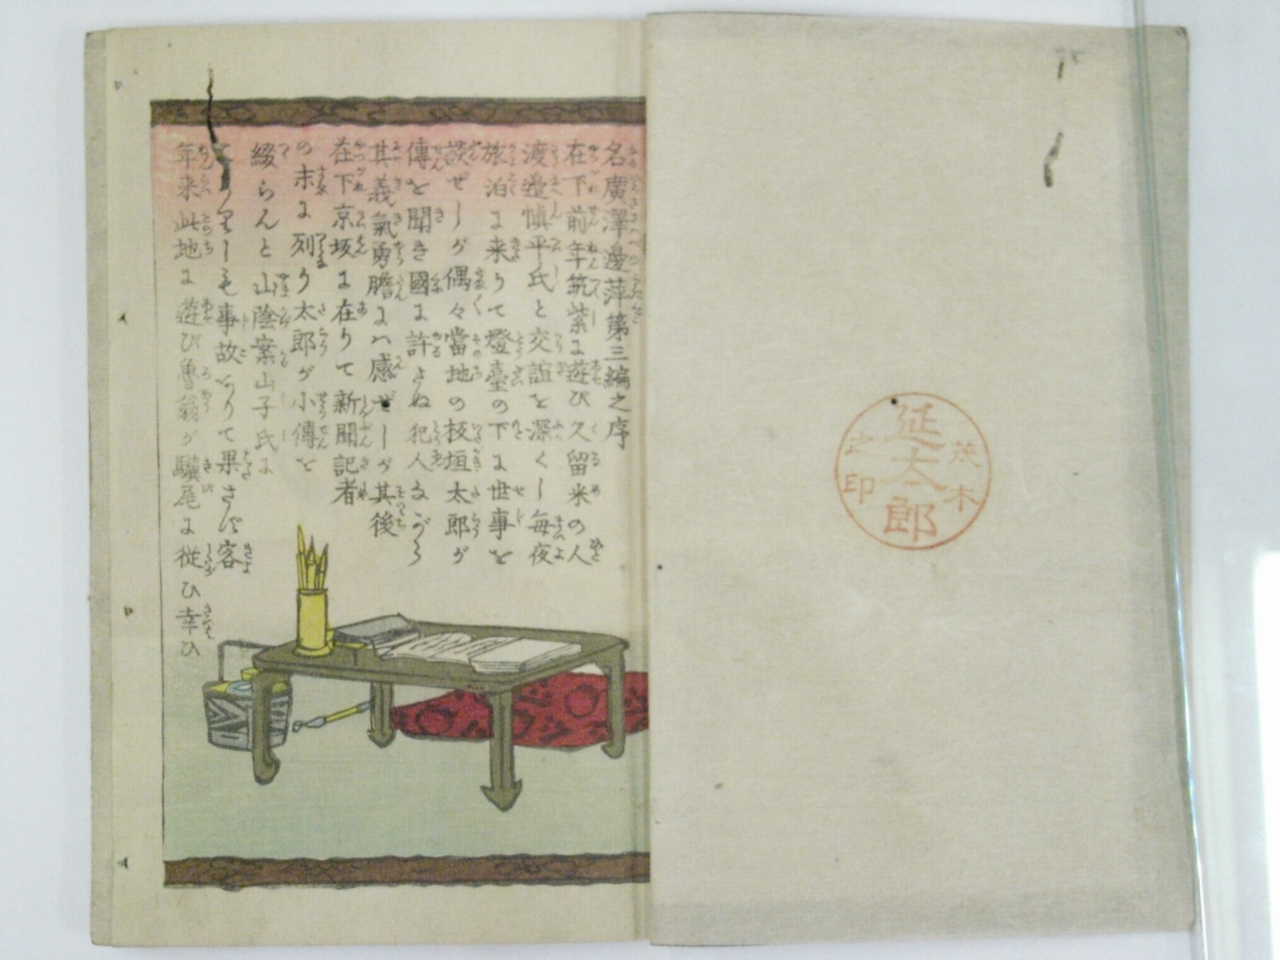 茂木
延太郎
之印
名廣澤邊萍第三編之序
在下前年筑紫に遊び久留米の人
渡邉慎平氏と交誼を深くし毎夜
旅泊に来りて燈臺の下に世事を
談ぜしが偶々當地の板垣太郎が
傳を聞き國に許さぬ犯人ながら
其義氣勇膽には感ぜしが其後
在下京坂に在りて新聞記者
の末に列り太郎が小傳を
綴らんと山陰案山子氏に
しも事故ありて果さず客
年来此地に遊び魯翁が驥尾に従ひ幸ひ